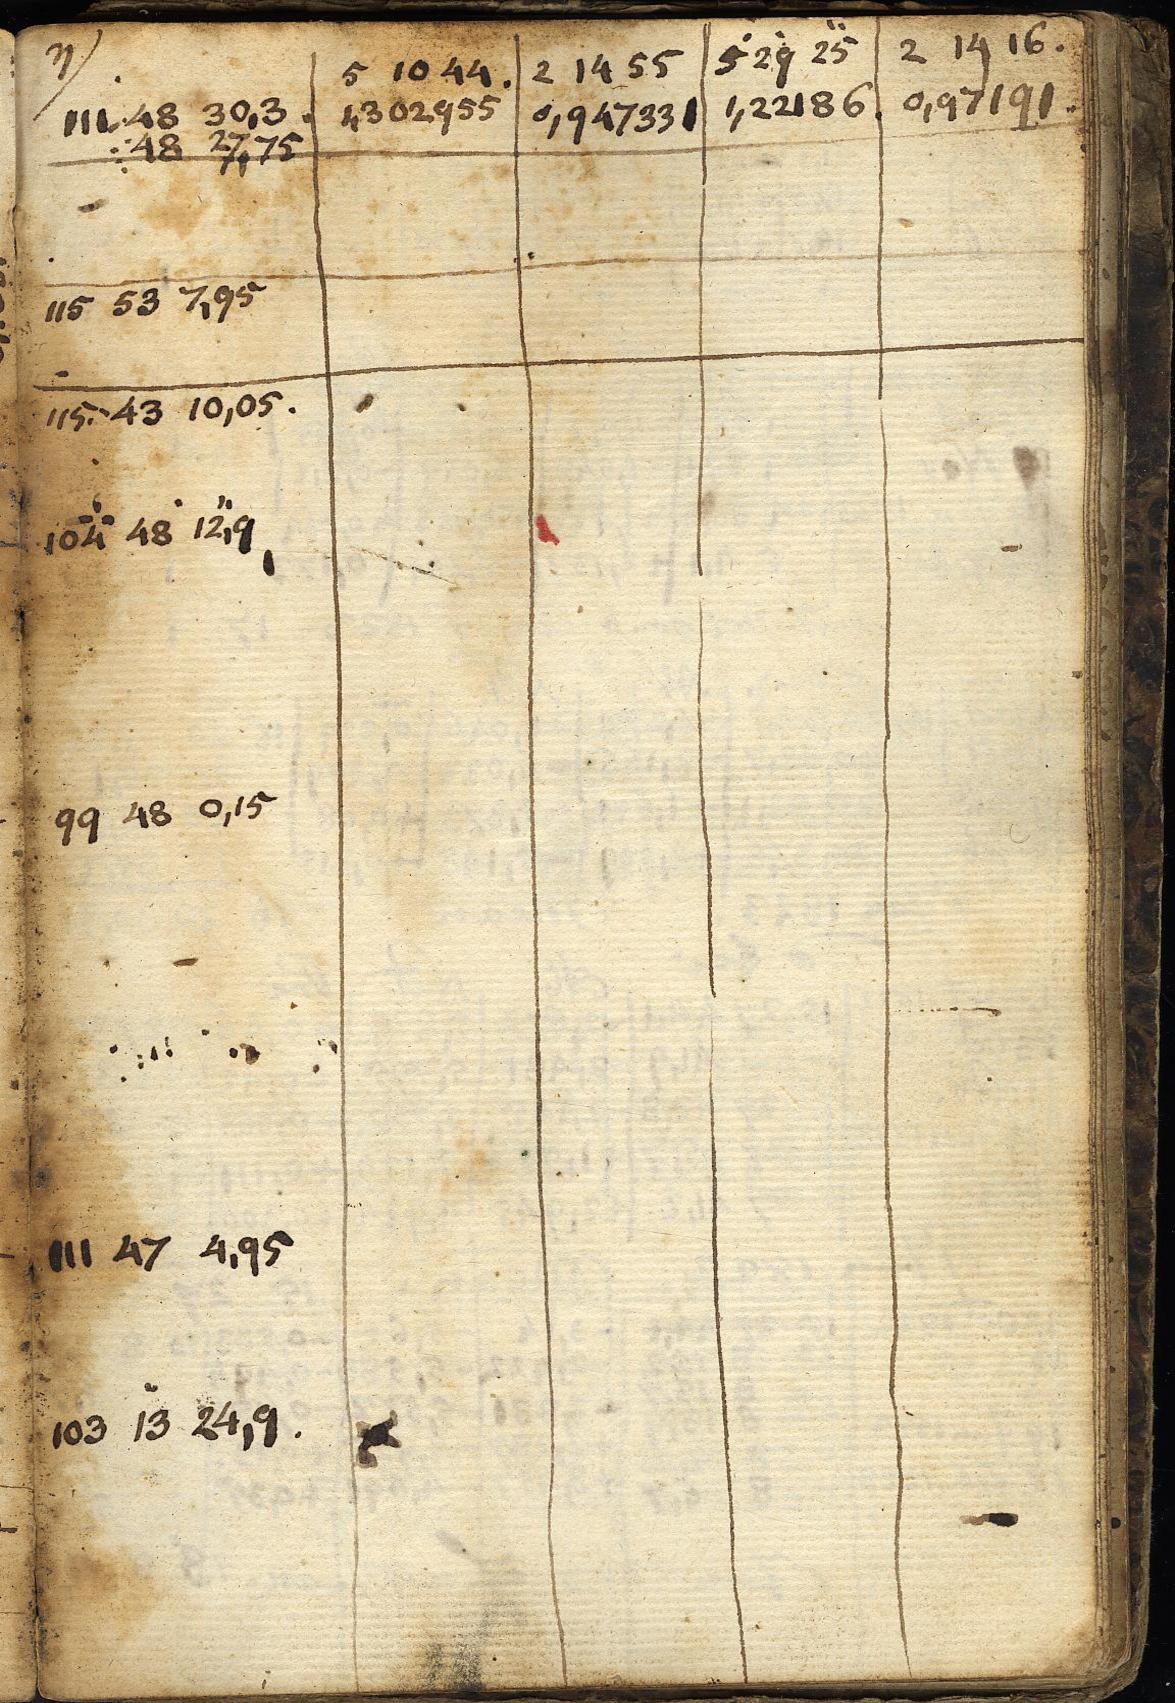 η)
5 10 44. 2 14 55 5 29 25 2 14 16.
111. 48 30,3. 1,302955 0,947331 1,22186. 0,97191.
48 27,75
115 53 7,95
115. 43 10,05.
104 48 12,9
99 48 0,15
111 47 4,95
103 13 24,9.